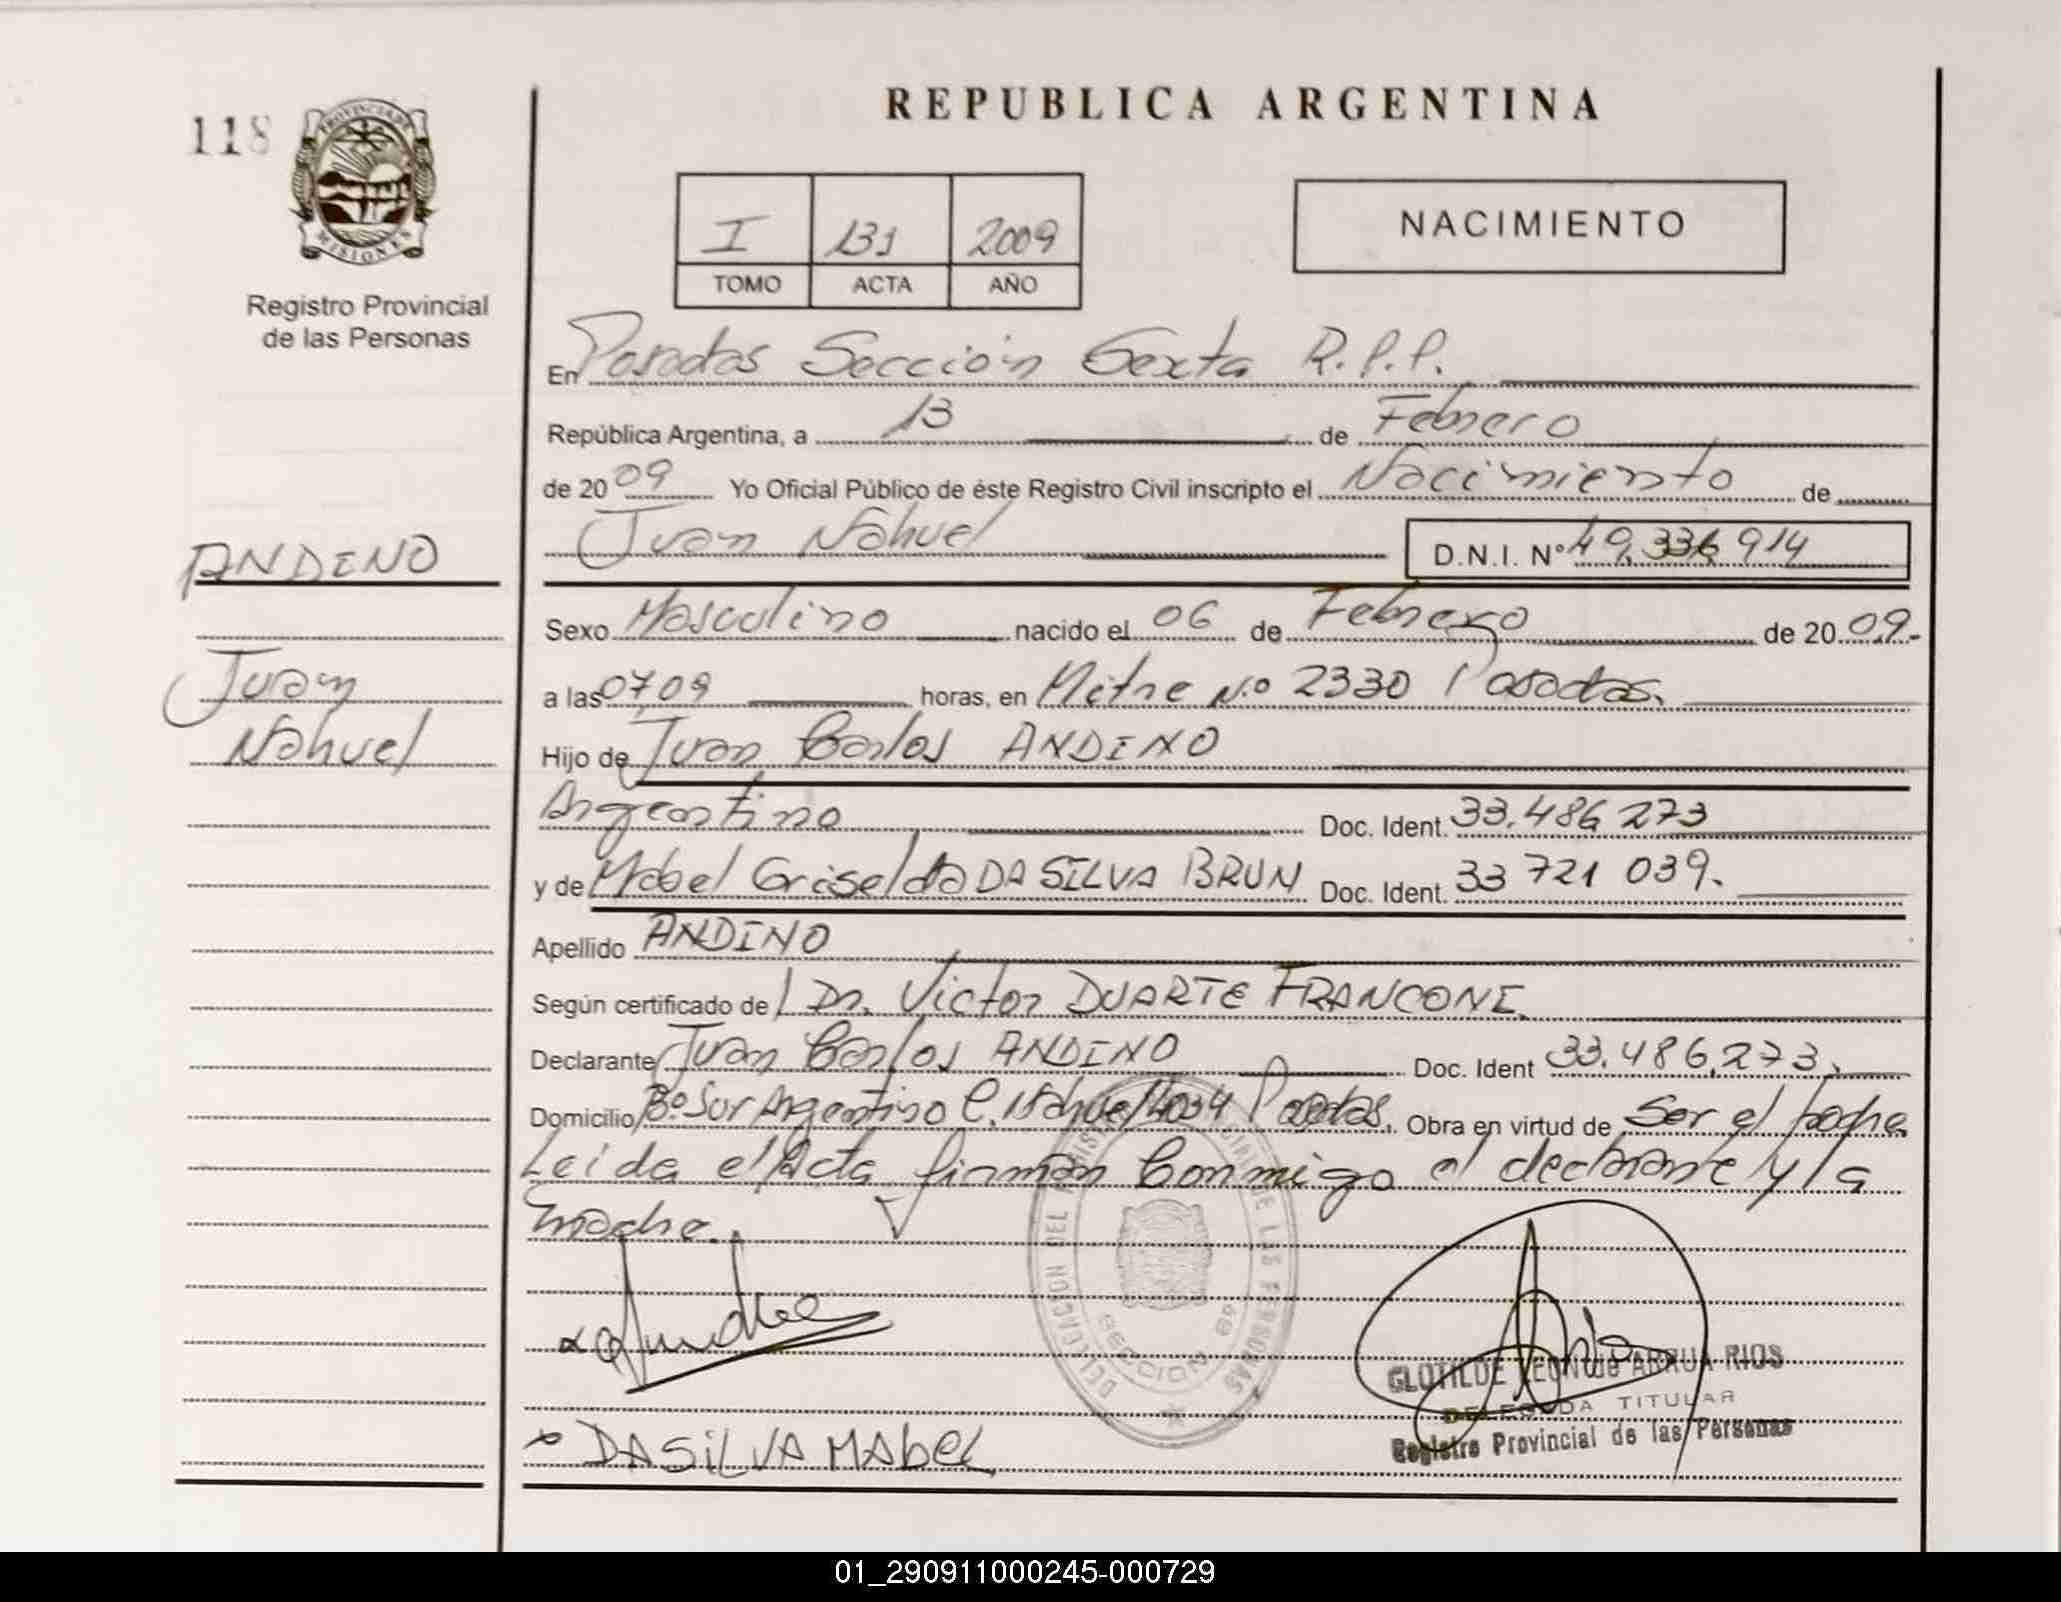 118
PROVINCIA DE
MISIONES
Registro Provincial
de las Personas
REPUBLICA ARGENTINA
I 131 2009
TOMO ACTA AÑO
NACIMIENTO
En Posadas Sección Sexta R.P.P.
República Argentina, a 13 de Febrero
de 2009 Yo Oficial Público de éste Registro Civil inscripto el Nacimiento de
Juan Nahuel D.N.I. Nº 49.336.914
ANDINO
Juan
Nahuel
Sexo Masculino nacido el 06 de Febrero de 2009.-
a las 07,09 horas, en Mitre N.º 2330 Posadas.
Hijo de Juan Carlos ANDINO
Argentino Doc. Ident. 33.486 273
y de Mabel Griselda DA SILVA BRUN Doc. Ident. 33 721 039.
Apellido ANDINO
Según certificado de Dr. Victor DUARTE FRANCONE.
Declarante Juan Carlos ANDINO Doc. Ident 33.486.273.
Domicilio Bº Sur Argentino C. Nahuel 4034 Posadas. Obra en virtud de Ser el padre
Leída el Acta firman Conmigo el declarante y la
madre.
DELEGACION DEL REGISTRO PROVINCIAL DE LAS PERSONAS
SECCION 6ª
CLOTILDE ARRUA RIOS
DELEGADA TITULAR
Registro Provincial de las Personas
DA SiLVA MAbEL
01_290911000245-000729